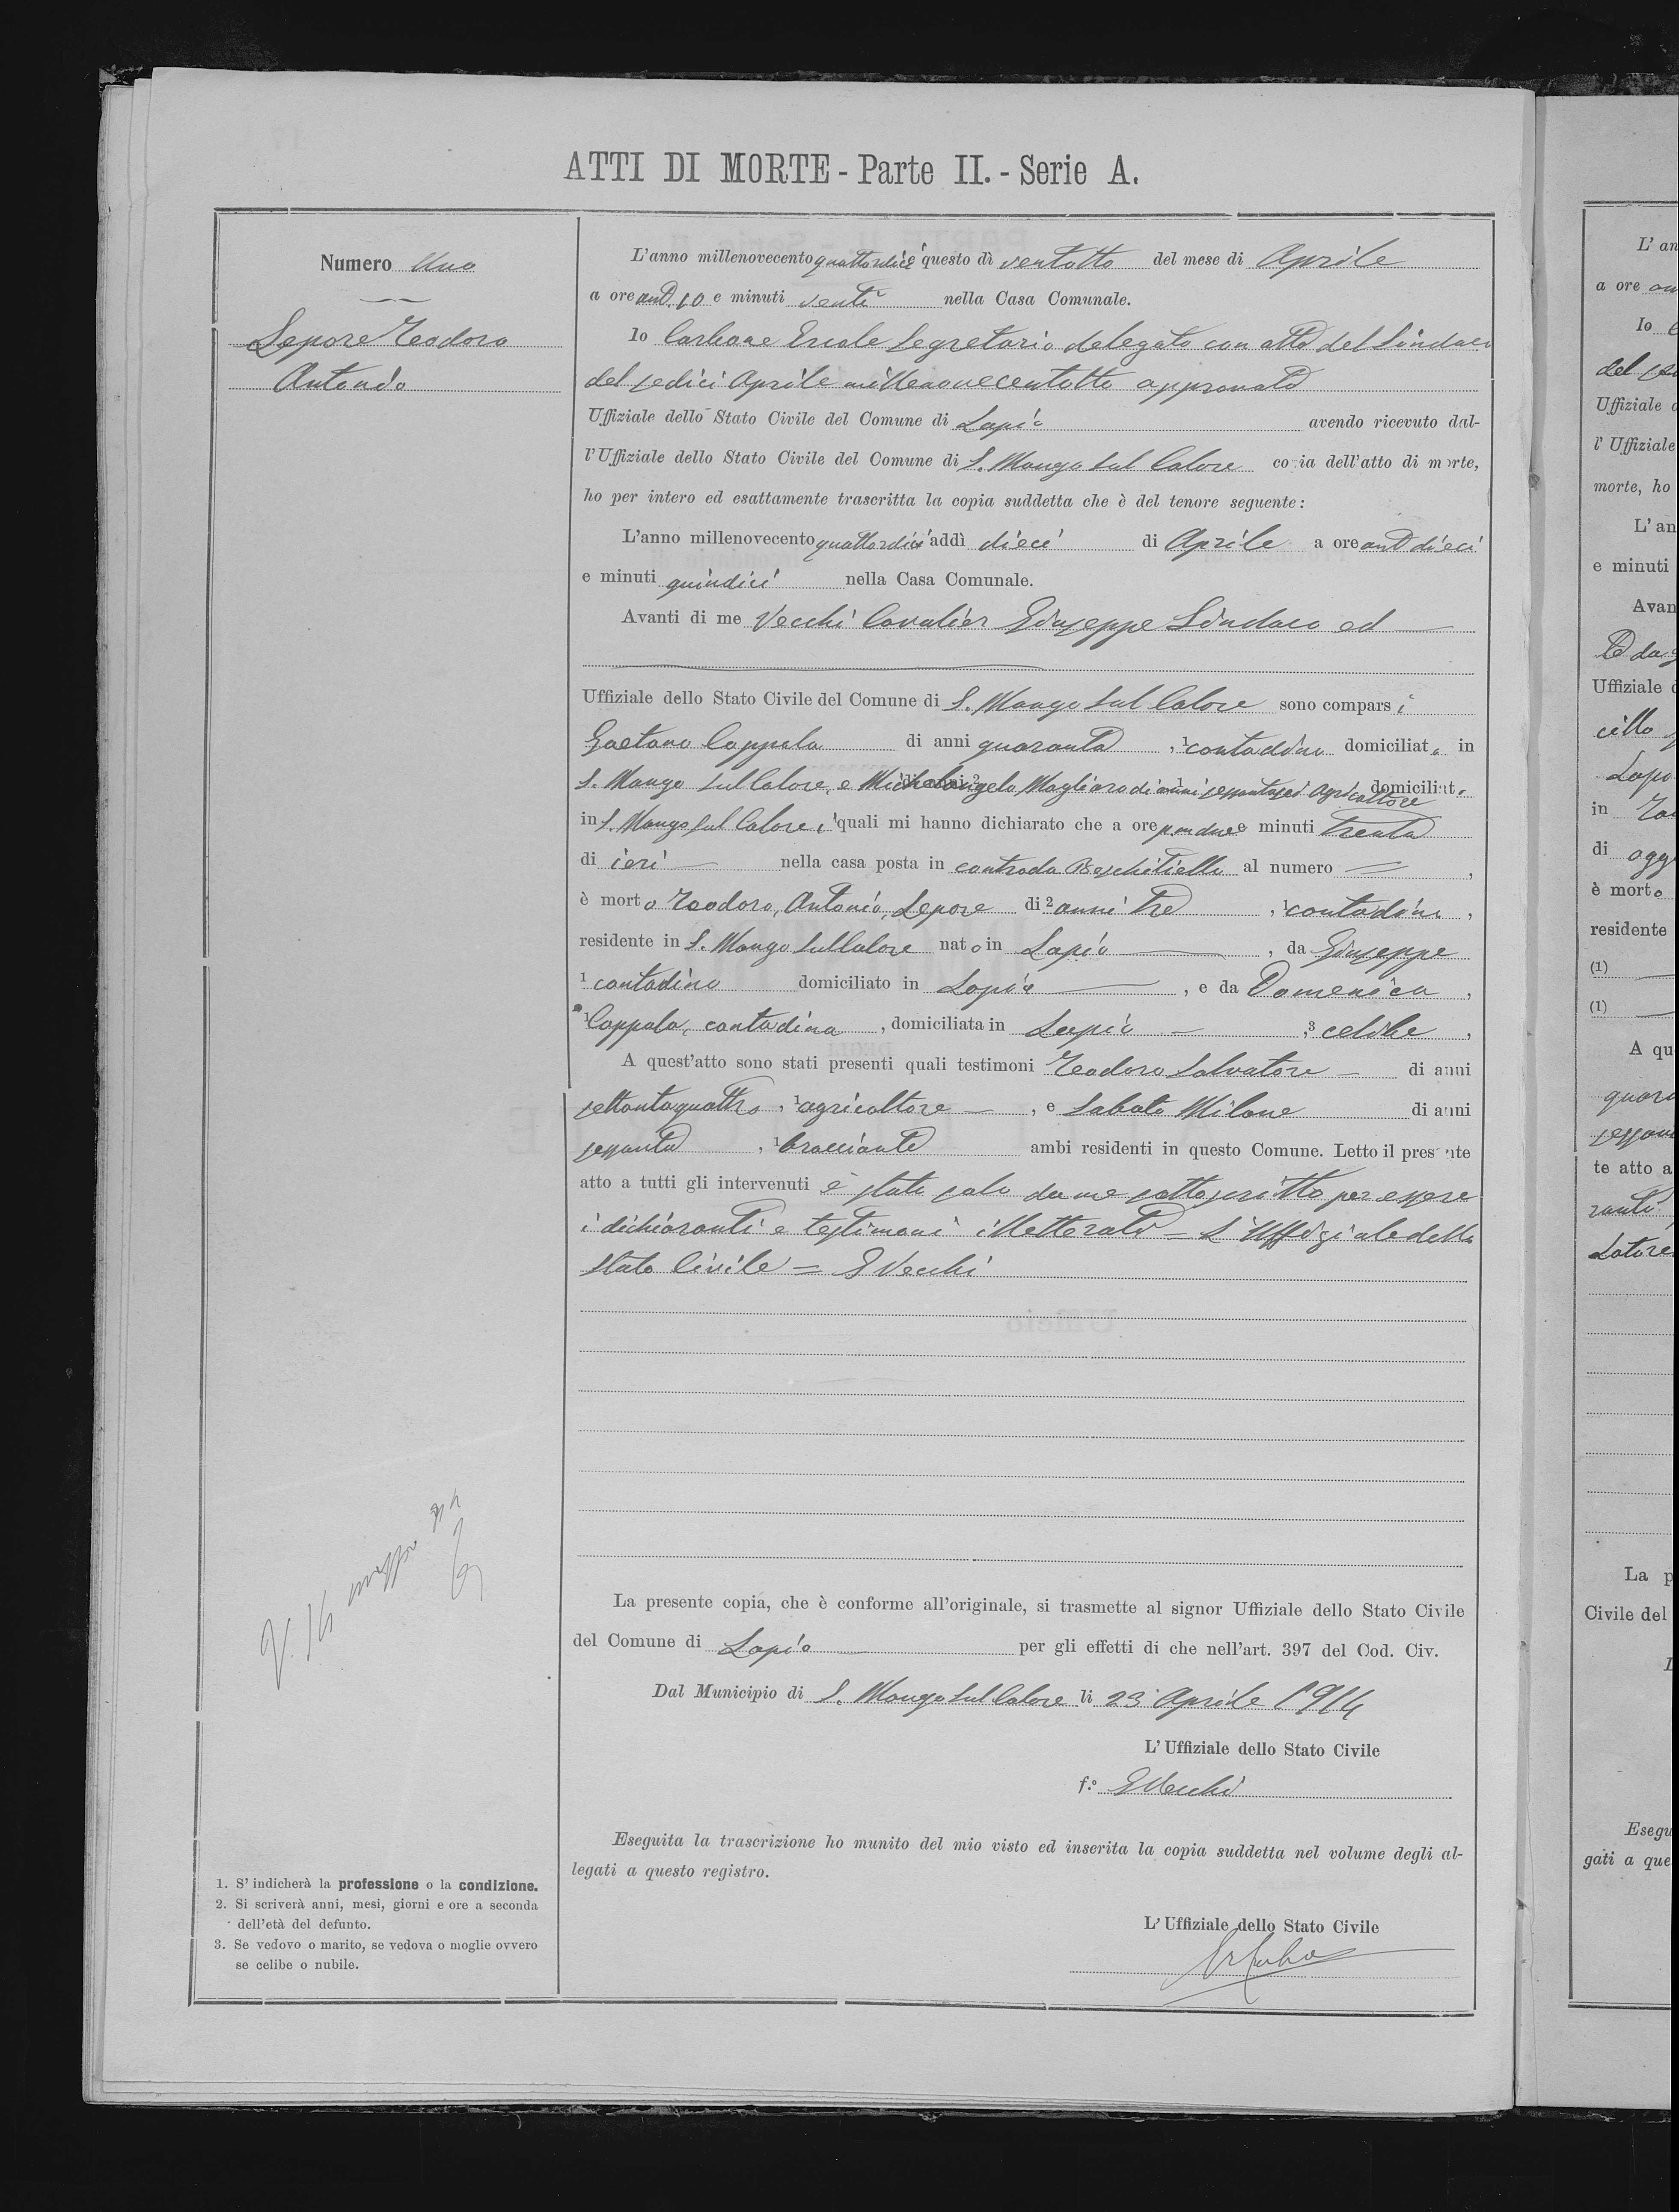 ATTI DI MORTE - Parte II. - Serie A.
Numero Uno
Lepore Teodoro
Antonio
L'anno millenovecento quattordici questo dì ventotto del mese di Aprile
a ore ant. 10 e minuti venti nella Casa Comunale.
Io Carbone Ercole Segretario delegato con atto del Sindaco
del sedici Aprile millenovecentotto approvato
Uffiziale dello Stato Civile del Comune di Lapio avendo ricevuto dal-
l'Uffiziale dello Stato Civile del Comune di S. Mango sul Calore copia dell'atto di morte,
ho per intero ed esattamente trascritta la copia suddetta che è del tenore seguente:
L'anno millenovecento quattordici addì dieci di Aprile a ore ant dieci
e minuti quindici nella Casa Comunale.
Avanti di me Vecchi Cavalier Giuseppe Sindaco ed
Uffiziale dello Stato Civile del Comune di S. Mango sul Calore sono comparsi
Gaetano Coppola di anni quaranta, 1 contadino domiciliato in
S. Mango sul Calore, e Michelangelo Magliaro di anni sessantasei agricoltore domiciliato
in S. Mango sul Calore, i quali mi hanno dichiarato che a ore pom due e minuti trenta
di ieri nella casa posta in contrada al numero ,
è morto Teodoro, Antonio, Lepore di 2 anni tre, 1 contadino,
residente in S. Mango sul Calore nato in Lapio, da Giuseppe
1 contadino domiciliato in Lapio, e da Domenica,
1 Coppola, contadina, domiciliata in Lapio, 3 celibe,
A quest'atto sono stati presenti quali testimoni Teodoro Salvatore di anni
settantaquattro, 1 agricoltore, e Sabato Milone di anni
sessanta, 1 bracciante ambi residenti in questo Comune. Letto il presente
atto a tutti gli intervenuti è stato solo da me sottoscritto per essere
i dichiaranti e testimoni illetterati = L'Uffiziale dello
Stato Civile = G Vecchi
La presente copia, che è conforme all'originale, si trasmette al signor Uffiziale dello Stato Civile
del Comune di Lapio per gli effetti di che nell'art. 397 del Cod. Civ.
Dal Municipio di S. Mango sul Calore li 23 Aprile 1914
L'Uffiziale dello Stato Civile
f.º G Vecchi
Eseguita la trascrizione ho munito del mio visto ed inserita la copia suddetta nel volume degli al-
legati a questo registro.
L'Uffiziale dello Stato Civile
V. 16 maggio
1. S'indicherà la professione o la condizione.
2. Si scriverà anni, mesi, giorni e ore a seconda
dell'età del defunto.
3. Se vedovo o marito, se vedova o moglie ovvero
se celibe o nubile.
L'an
a ore
Io
del
Uffiziale
l'Uffiziale
morte, ho
L'an
e minuti
Avan
Uffiziale
in
di ogg
è morto
residente
(1)
(1)
A qu
te atto a
La p
Civile del
Esegu
gati a que